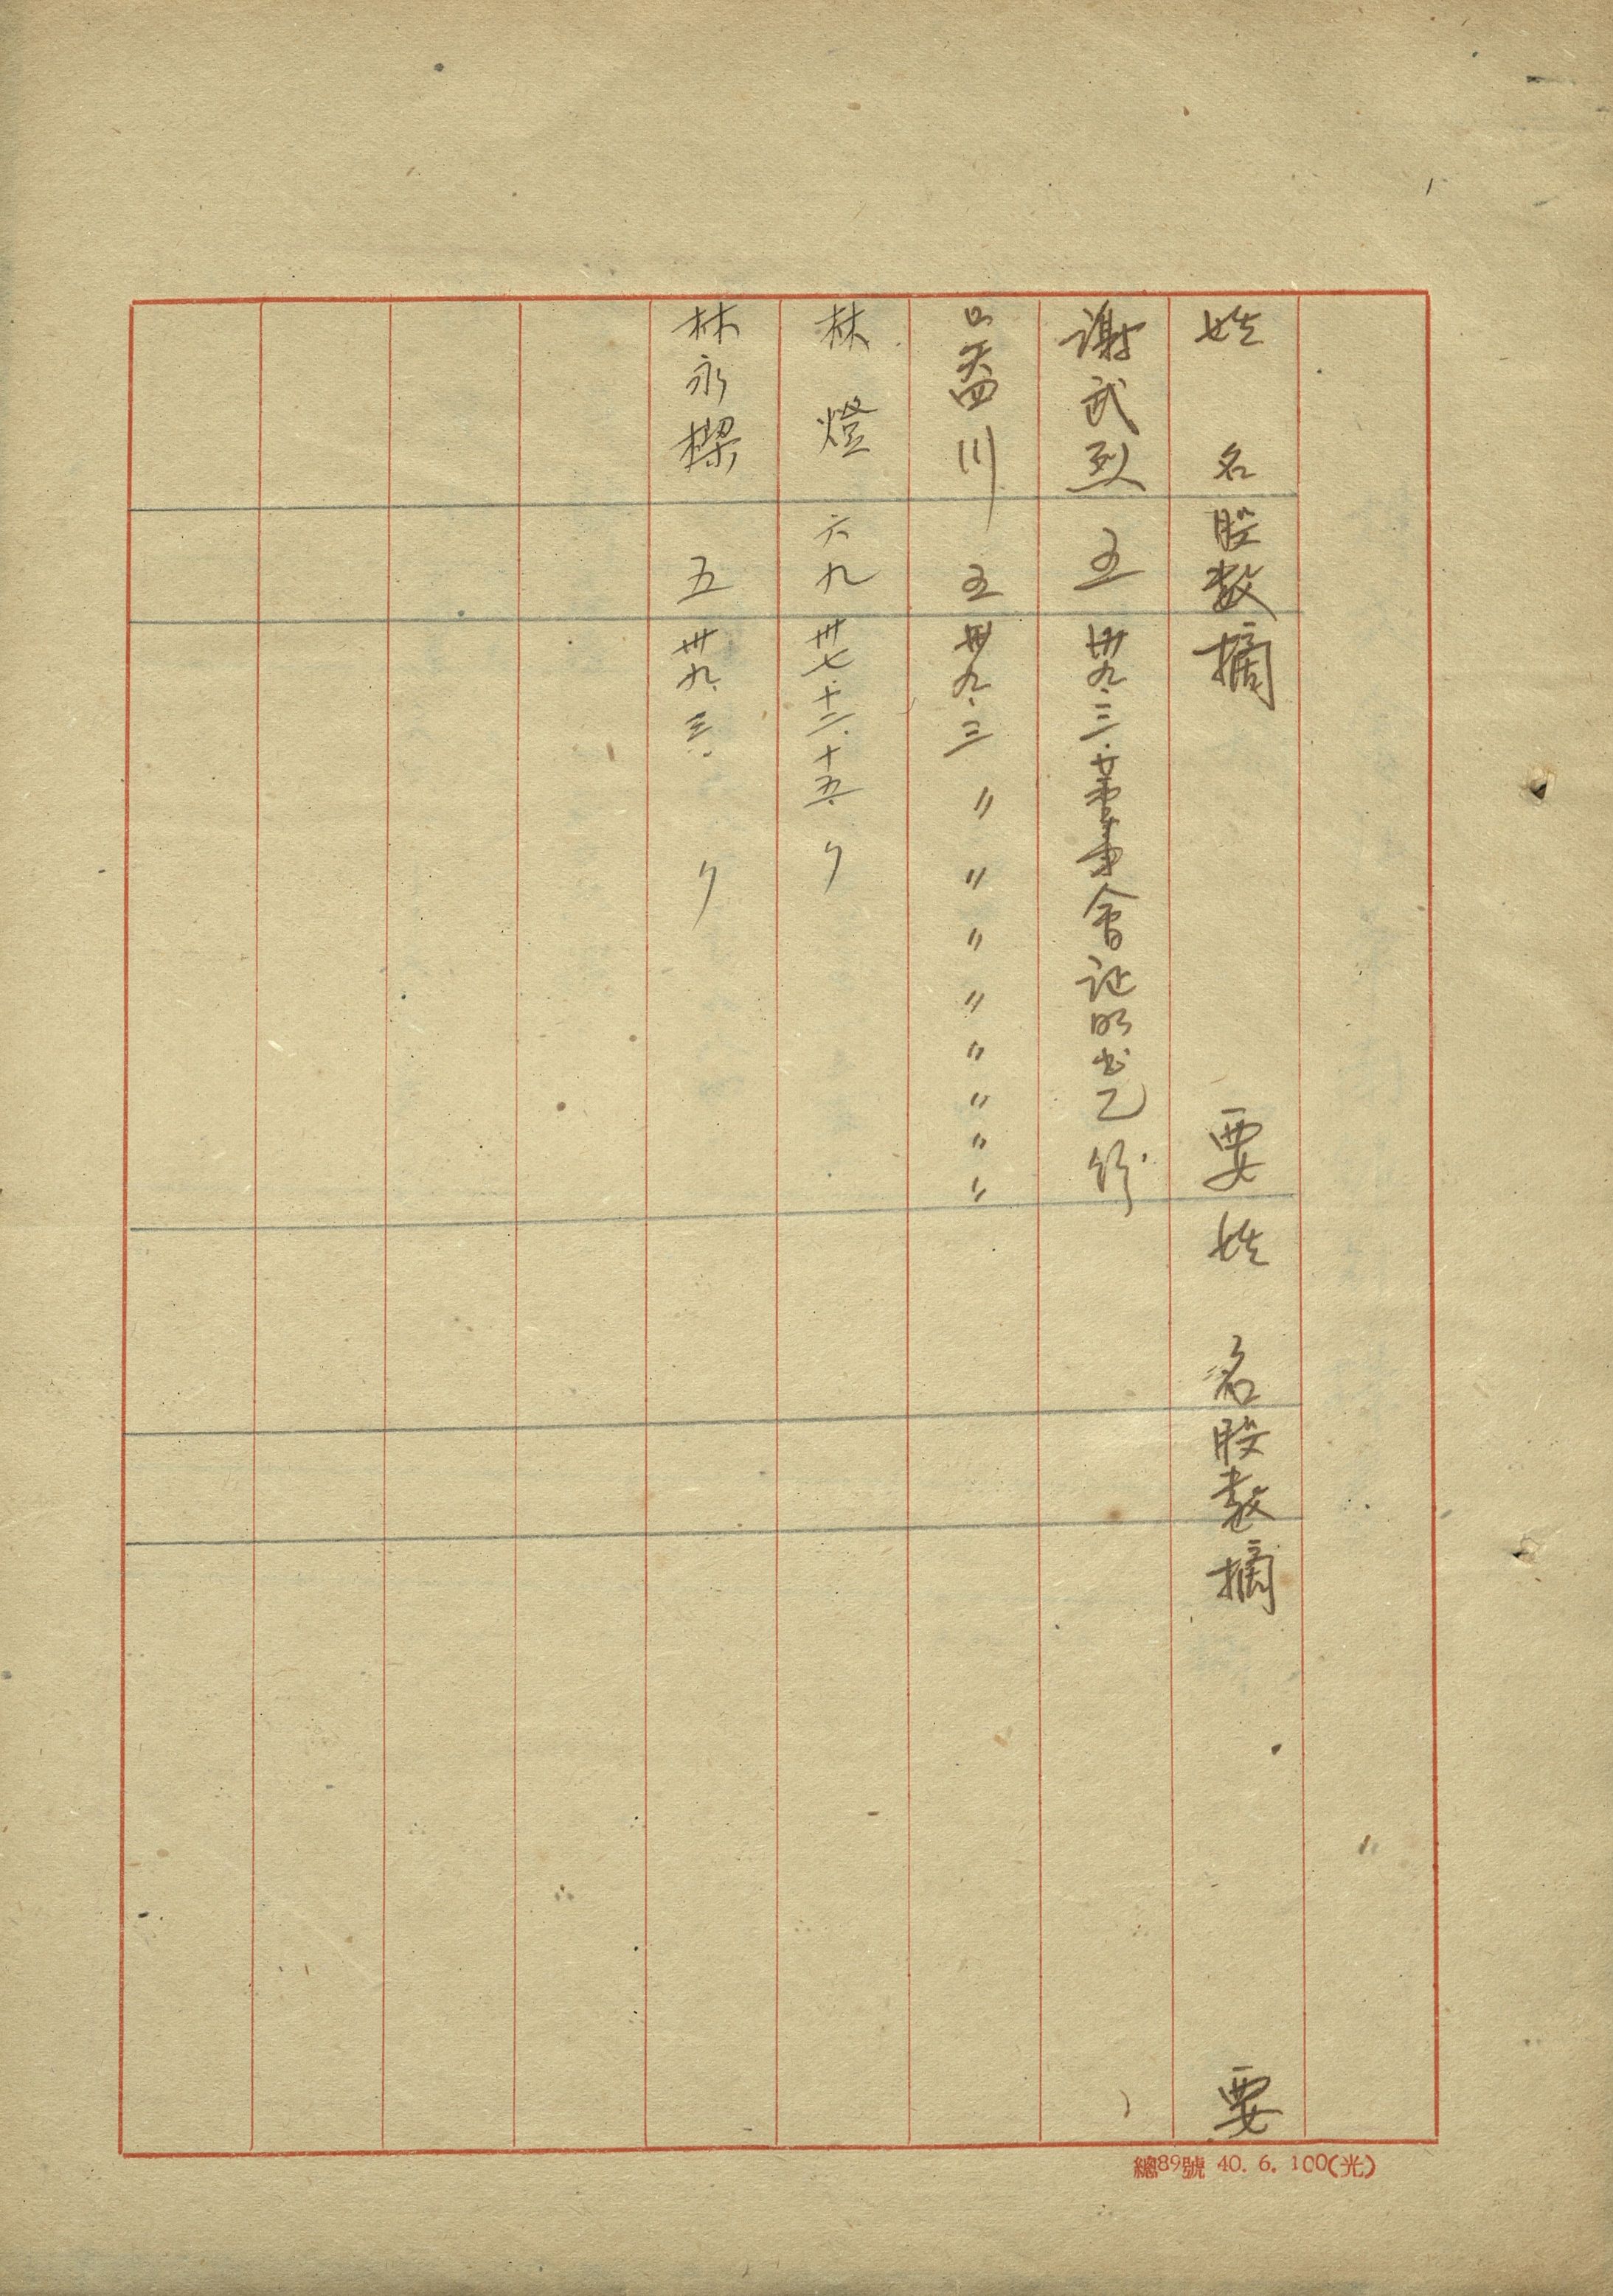 姓名 股數 摘要 姓名 股數 摘要
謝武烈 五 卅九.三.廿董事會证明书乙紙
川 五 卅九.三 〃 〃 〃 〃 〃 〃 〃 〃
林燈 六九 卅七.十二.十五. 〃
林永樑 五 卅九.三. 〃
總89號 40. 6. 100(光)